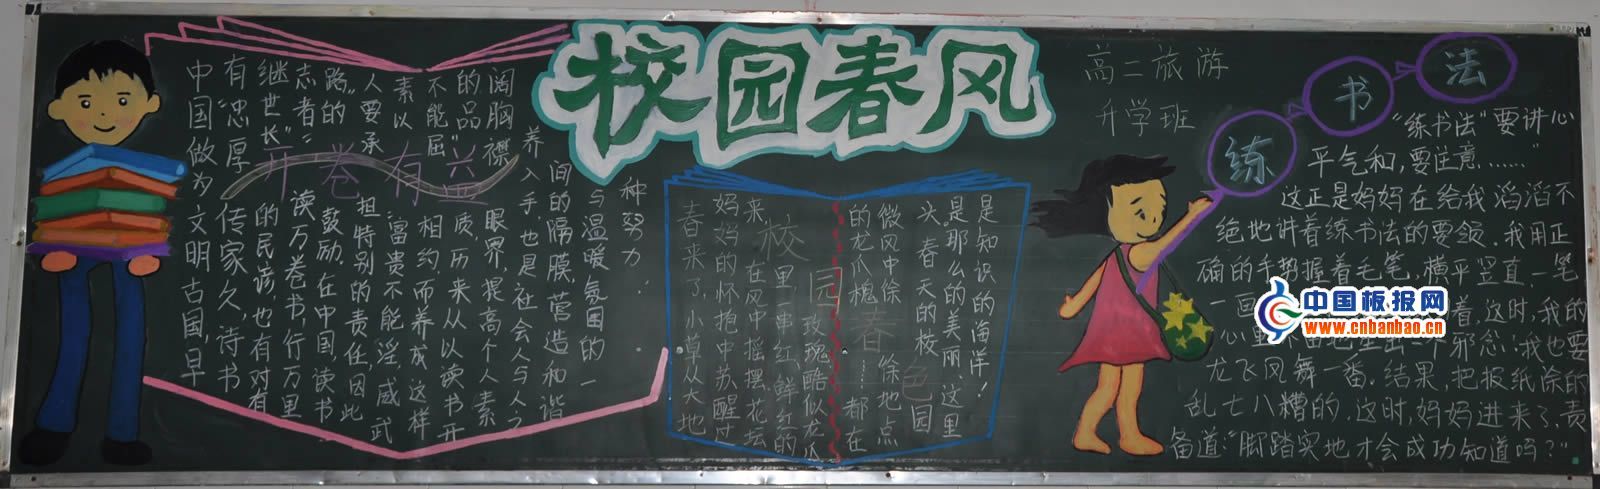 校园春风
高二旅游
升学班
开卷有益
中国做为文明古国,早
有“忠厚传家久,诗书
继世长”的民谚,也有对有
志者“读万卷书,行万里
路”的鼓励,在中国读书
人要承担特别的责任,因此
素以“富贵不能淫,威武
不能屈”相约,而养成这样
的品质,历来从以读书开
阔胸襟眼界,提高个人素
养入手,也是社会人与人之
间的隔膜营造和谐
与温暖氛围的一
种努力..
校园春色
春来了,小草从大地
妈妈的怀抱中苏醒过
来,在风中摇摆,花坛
里串红,鲜红的
玫瑰酷似龙爪
的龙爪槐……都在
微风中徐徐地点
头,春天的校园
是那么的美丽,这里
是知识的海洋!
练书法
“练书法”要讲心
平气和,要注意……”
这正是妈妈在给我滔滔不
绝地讲着练书法的要领.我用正
确的手势握着毛笔,横平竖直,一笔
一画 着,这时,我的
心里 生出一个邪念:我也要
龙飞风舞一番.结果,把报纸涂的
乱七八糟的,这时,妈妈进来了,责
备道:“脚踏实地才会成功知道吗?”
中国板报网
www.cnbanbao.cn